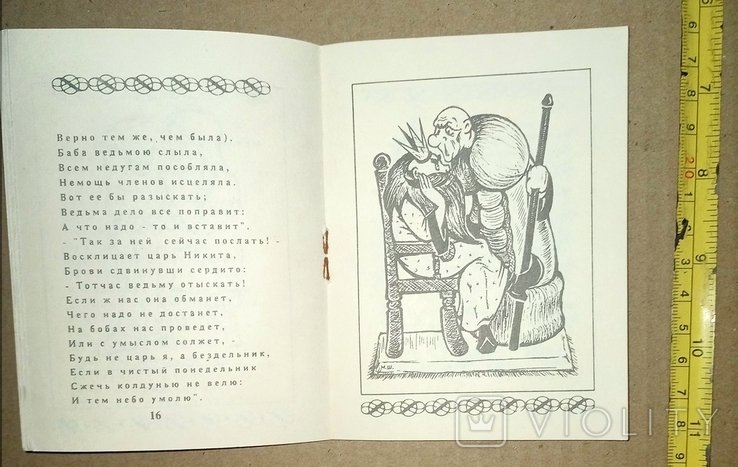 Верно тем же, чем была).
Баба ведьмою слыла,
Всем недугам пособляла,
Немощь членов исцеляла.
Вот ее бы разыскать;
Ведьма дело все поправит:
А что надо - то и вставит".
- "Так за ней сейчас послать! -
Восклицает царь Никита,
Брови сдвинувши сердито:
- Тотчас ведьму отыскать!
Если ж нас она обманет,
Чего надо не достанет,
На бобах нас проведет,
Или с умыслом солжет, -
Будь не царь я, а бездельник,
Если в чистый понедельник
Сжечь колдунью не велю:
И тем небо умолю".
16
М.Ш.
VIOLITY
6
7
7
8
9
20
1
2
3
4
5
6
7
8
8
9
10
11